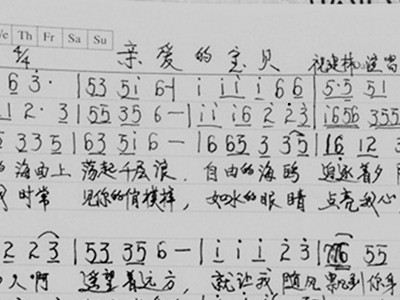 Th Fr Sa Su
4/4 亲爱的宝贝
6 3· | 53 51 6- | i i i i 66 | 5·5 51
1 2· 3 | 55 35 6 — | i i i6 2 2 3 | 1656 355
5 335 | 63 51 6 — | 6 65 3 35 | 16 12 3
海面上 荡起千层浪 自由的海鸥 追逐着夕
时常 见你的俏模样, 如水的眼睛 点亮我心
2 2 3 | 53 35 6 — | i i i 2 3 | 55
人啊 遥望着远方, 就让我随风飘到你身